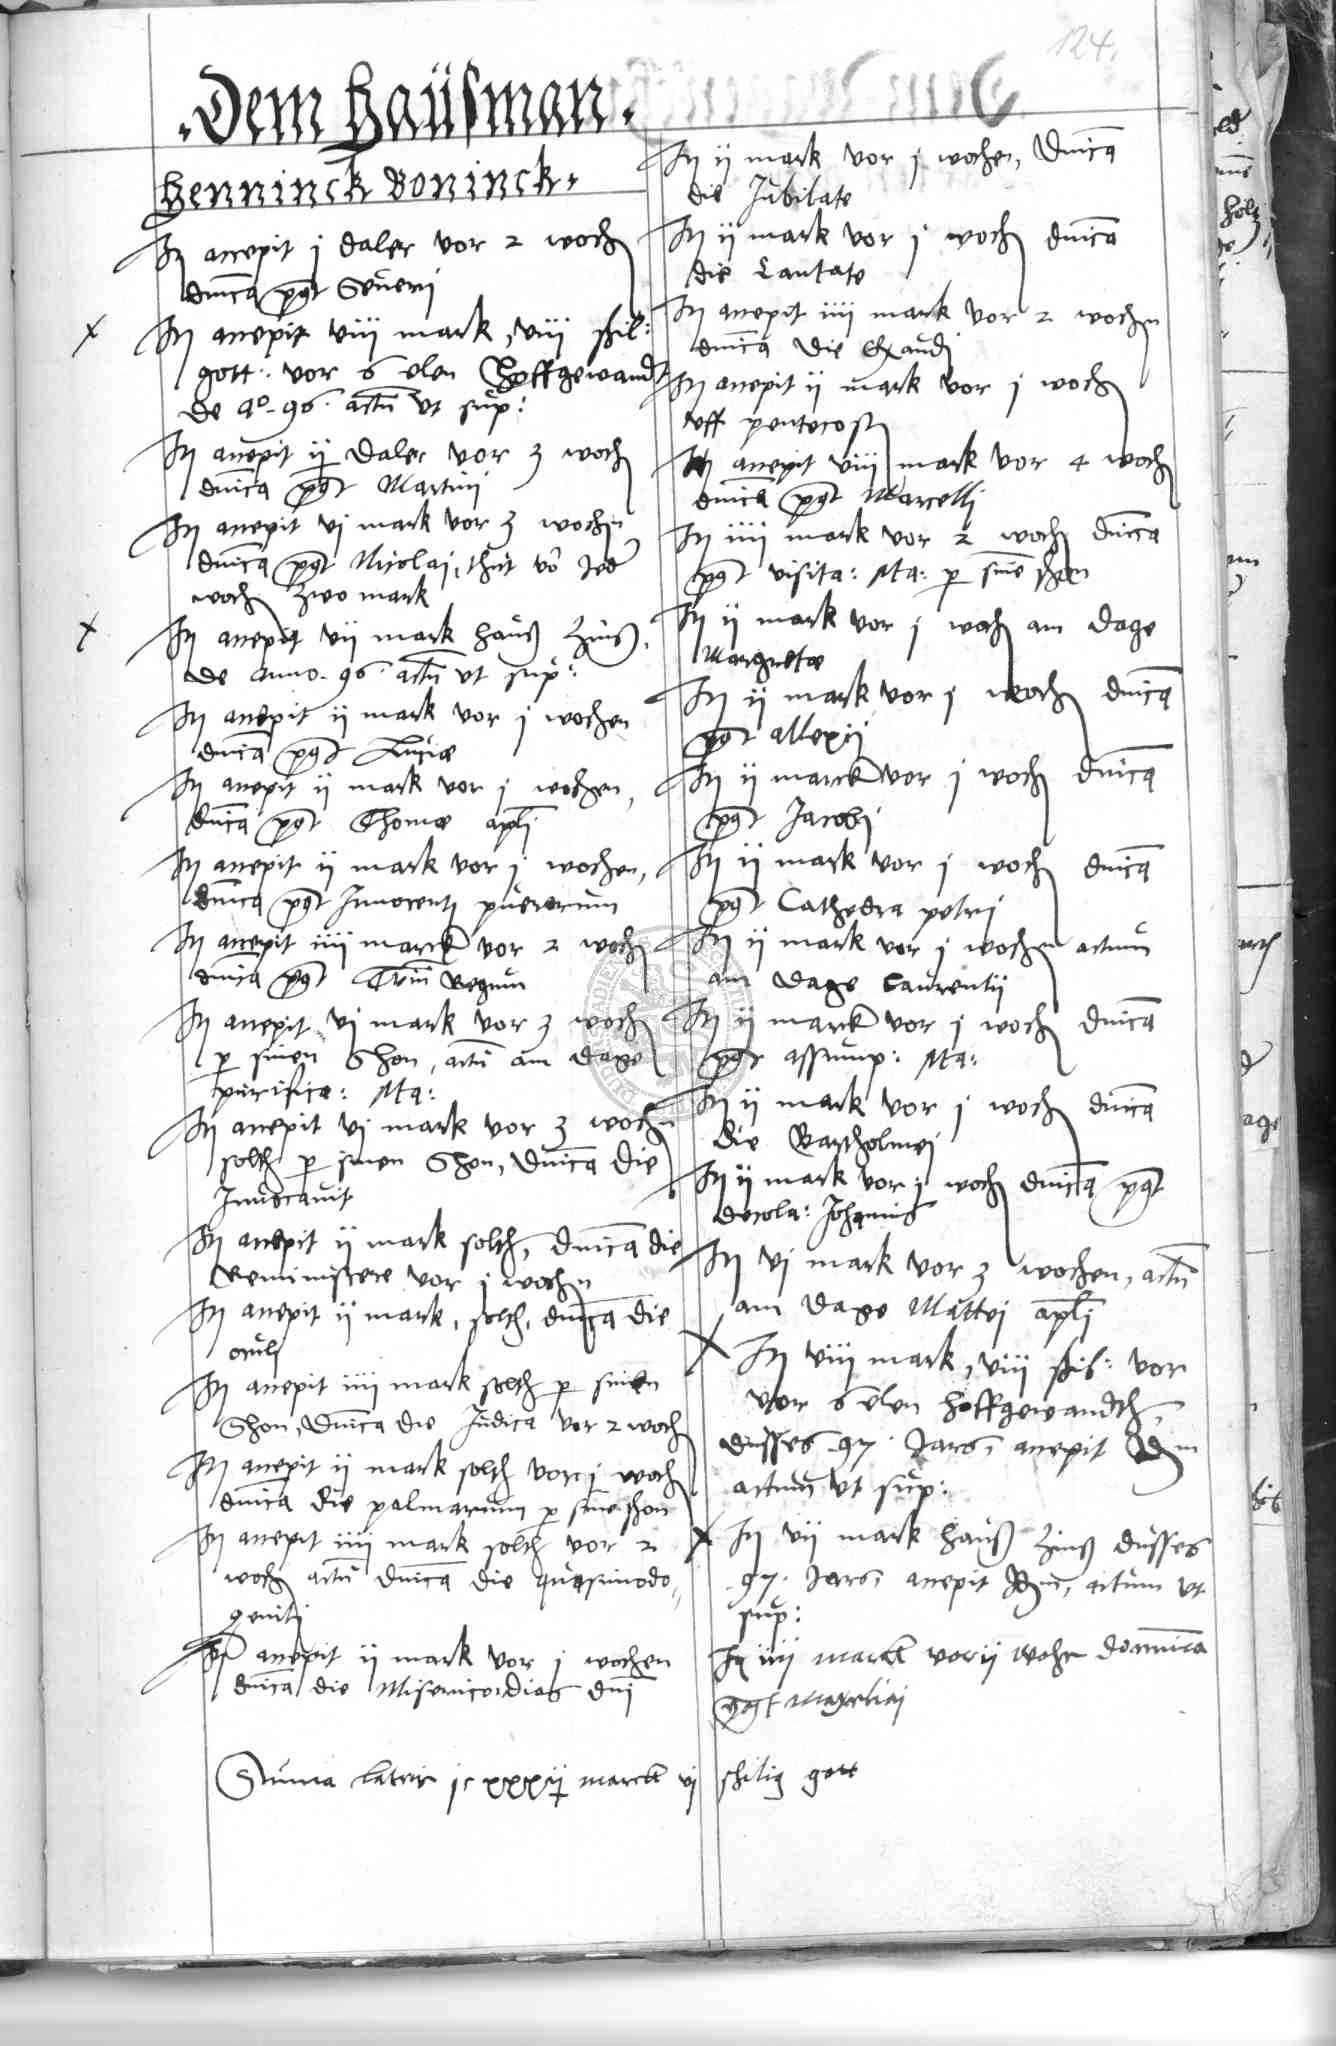 124.
Dem Haüsman
Henninck Boninck
It accepit j daler vor 2 woch
dnica post Severi
It accepit viij mark, viij schil:
gott: vor 6 elen Hoffgewandt
de ao. 96. actu ut sup:
It accepit ij daler vor 3 woch
dnica post Martini
It accepit vj mark vor 3 wochn
dnica post Nicolai, thut vor Jed
woch zwo mark
It accepit vij mark hauß zinß
de anno. 96. actu ut sup:
It accepit ij mark vor j wochen
dnica post Luciæ
It accepit ij mark vor j wochen,
dnica post Thomæ apli
It accepit ij mark vor j wochen,
dnica post Innocenti puerorum
It accepit iiij marck vor 2 woch
dnica post Trium Regum
It accepit vj mark vor 3 woch
p sinen Shon, actu am dage
purifica: Ma:
It accepit vj mark vor 3 wochn
solth p sinen Shon, dnica die
Invocavit
It accepit ij mark solth, dnica die
Reminiscere vor j wochn
It accepit ij mark, solth, dnica die
oculi
It accepit iiij mark solth p sinen
Shon, dnica die Judica vor 2 woch
It accepit ij mark solth vor j woch
dnica die palmarum p sine shon
It accepit iiij mark solth vor 2
woch actu dnica die quasimodo
geniti
It accepit ij mark vor j wochen
dnica die Misericordias dni
It ij mark vor j wochen, dnica
die Jubilate
It ij mark vor j woch dnica
die Cantate
It accepit iiij mark vor 2 wochn
dnica die Exaudi
It accepit ij mark vor j woch
uff pentecost
It accepit viij mark vor 4 woch
dnica post Marcelli
It iiij mark vor 2 woch dnica
post visita: Ma: p sine shon
It ij mark vor j woch am dage
Margretæ
It ij mark vor j woch dnica
post allexij
It ij marck vor j woch dnica
post Jacobi
It ij mark vor j woch dnica
post Cathedra petri
It ij mark vor j wochen actum
am dage Laurentii
It ij marck vor j woch dnica
post assump: Ma:
It ij mark vor j woch dnica
die Bartholmei
It ij mark vor j woch dnica post
decola: Johannis
It vj mark vor 3 wochen, actu
am dage Mattei apli
It viij mark, viij schil: vor
vor 6 elen hoffgewandth,
dusses .97. Jars, accepit
actum ut sup:
It vij mark hauß zinß dusses
.97. Jars, accepit actum ut
sup:
It iiij marck vor ij wohn dominica
post
Summa lateris jc xxxij marck vj schilig gott